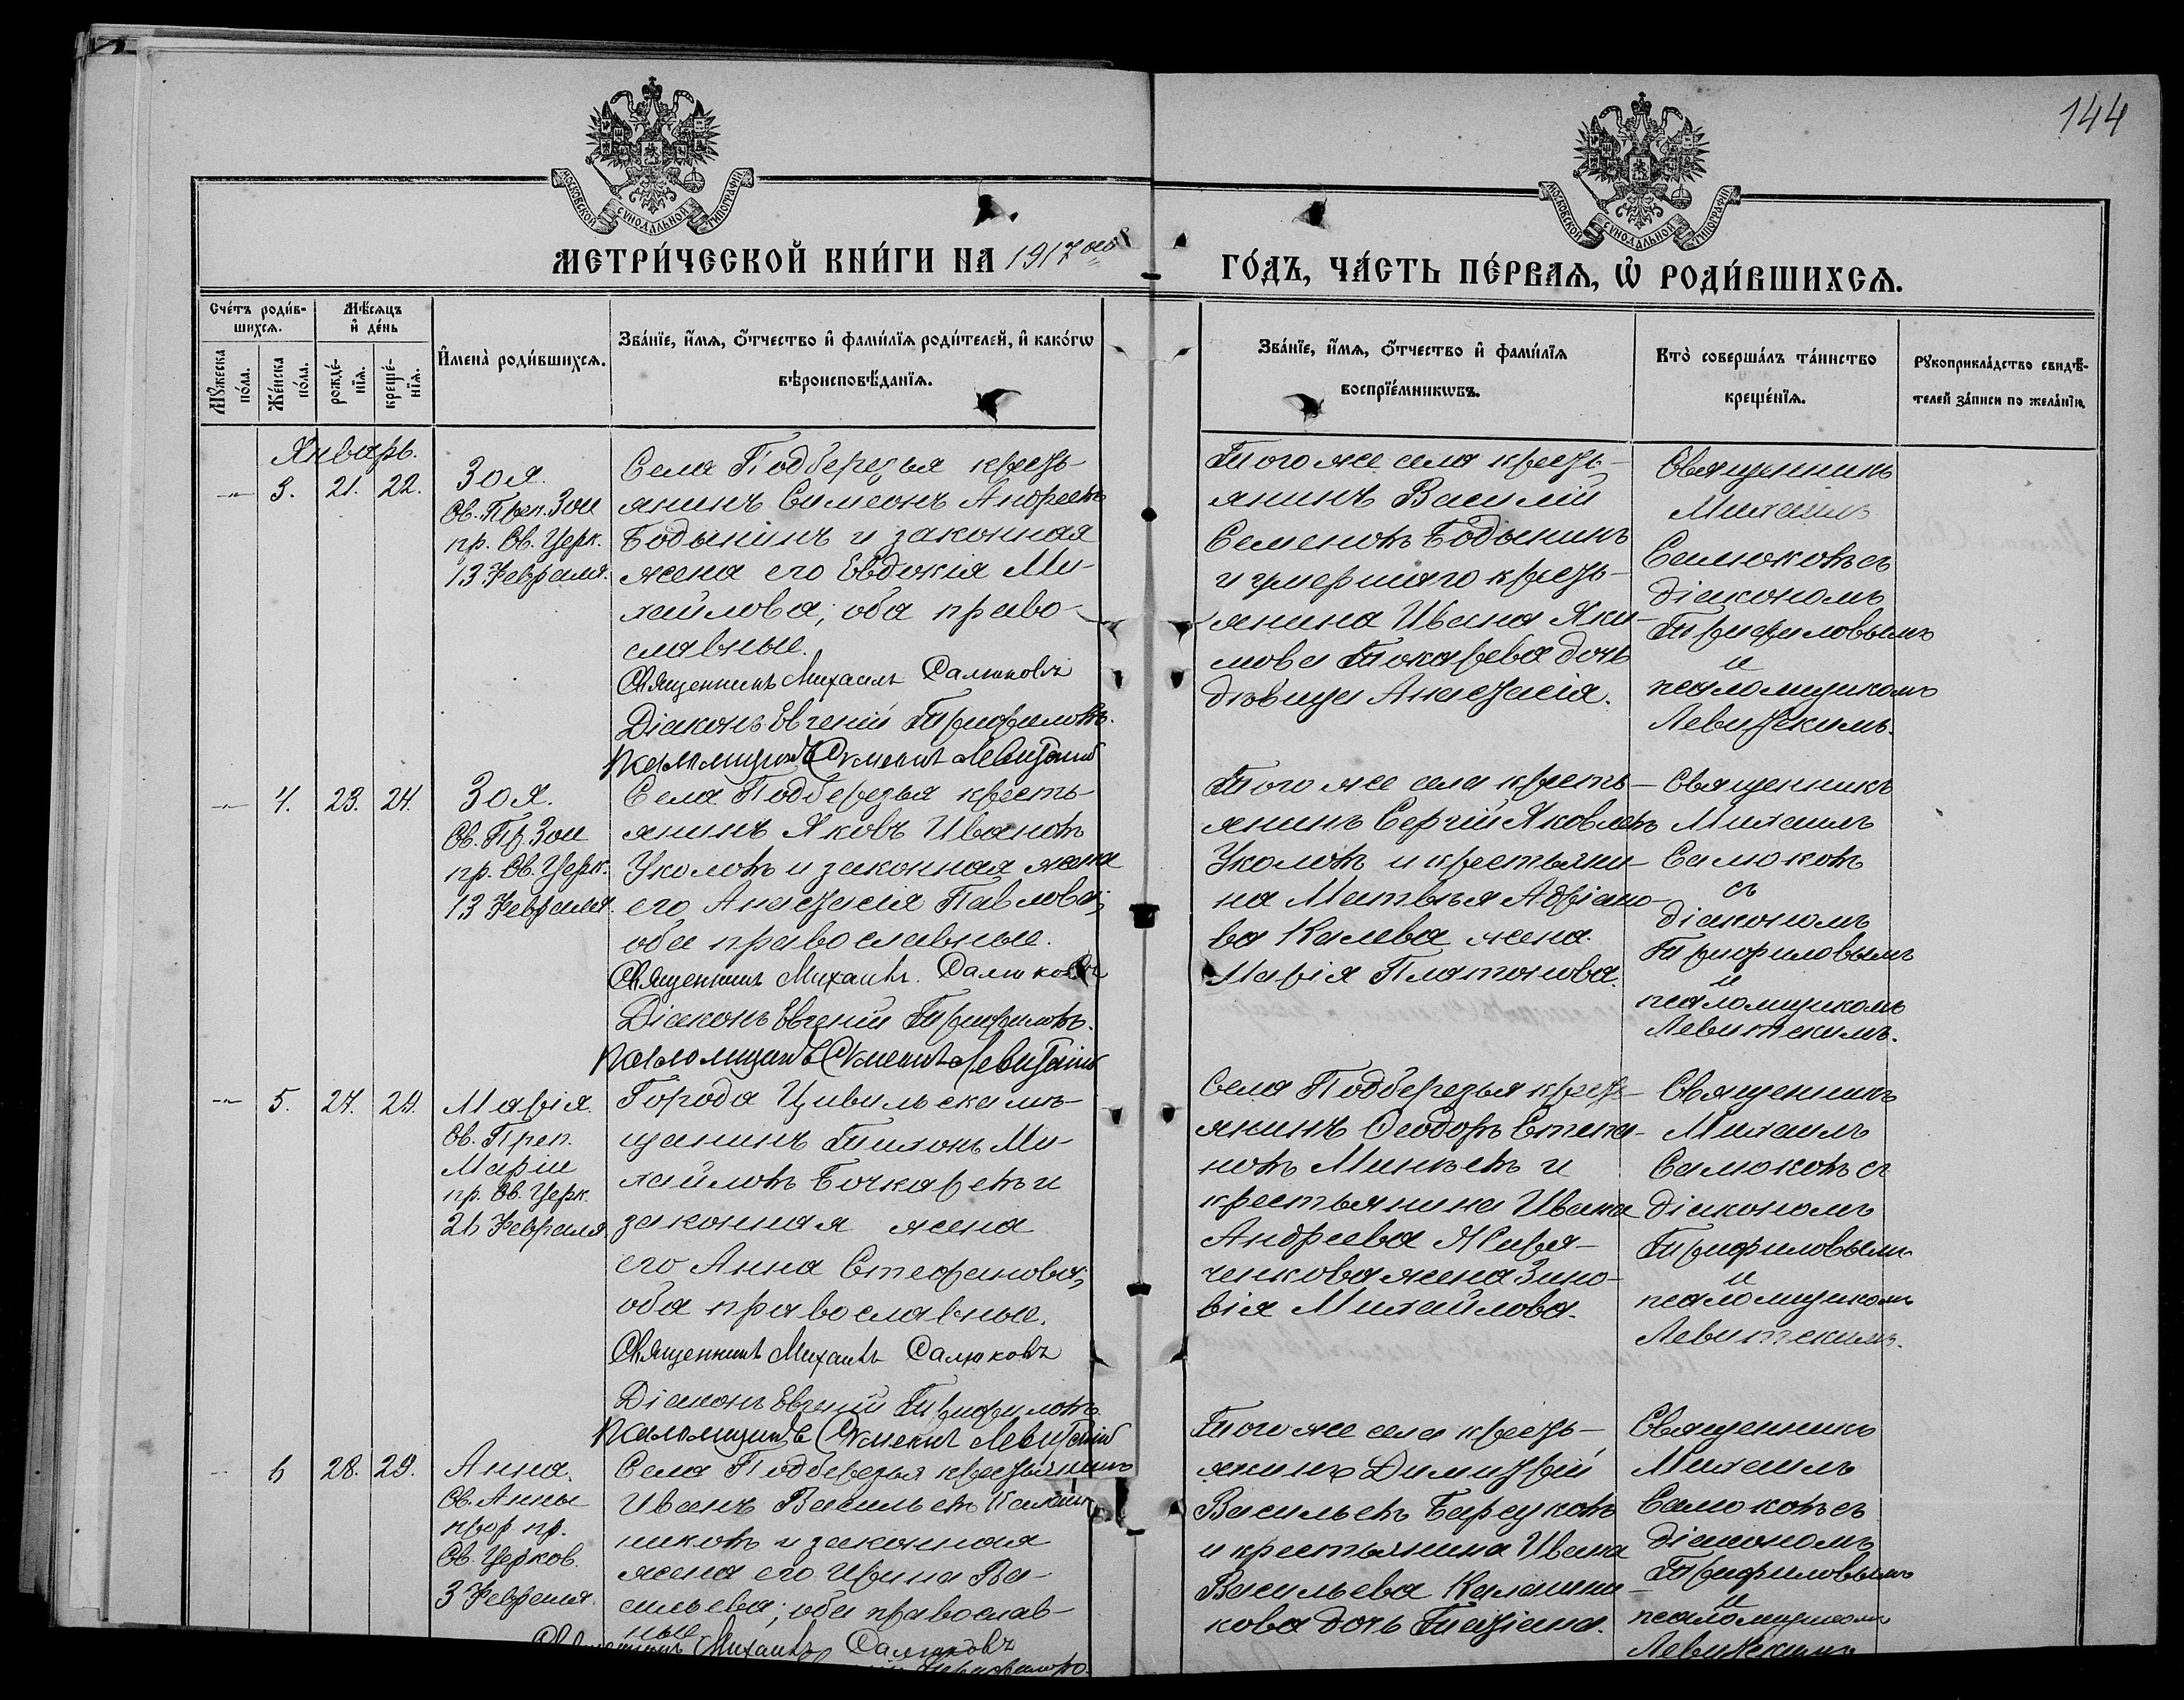 144
МОСКОВСКОЙ СУНОДАЛЬНОЙ ТИПОГРАФІИ
МОСКОВСКОЙ СУНОДАЛЬНОЙ ТИПОГРАФІИ
МЕТРИ́ЧЕСКОЙ КНИ́ГИ НА 1917 ый
ГО́ДЪ, ЧА́СТЬ ПЕ́РВАѦ, Ѿ РОДИ́ВШИХСѦ.
Сче́тъ роди́в-
шихсѧ.
Мѣ́сѧцъ
и҆ де́нь
Мꙋ́жеска
по́ла.
Же́нска
по́ла.
рожде́-
нїѧ.
креще́-
нїѧ.
И҆мена̀ роди́вшихсѧ.
Зва́нїе, и҆́мѧ, ѻ҆́тчество и҆ фами́лїѧ роди́телей, и҆ како́гѡ
вѣроисповѣ́данїѧ.
Зва́нїе, и҆́мѧ, ѻ҆́тчество и҆ фами́лїѧ
воспрїе́мникѡвъ.
Кто̀ соверша́лъ та́инство
креще́нїѧ.
Рꙋкоприкла́дство свидѣ́-
телей за́писи по жела́нїю.
Январь.
-"- 3. 21. 22.
Зоя.
Св. Преп. Зои
пр. Св. Церк.
13 Февраля.
Села Подберезья кресть-
янинъ Симеонъ Андреевъ
Бодынинъ и законная
жена его Евдокія Ми-
хайлова; оба право-
славные.
Священникъ Михаилъ Салюковъ
Діаконъ Евгеній Трифиловъ.
Псаломщикъ Левитскій
Того же села кресть-
янинъ Василій
Семеновъ Бодынинъ
и умершаго кресть-
янина Ивана Яки-
мова Токарева дочь
дѣвица Анастасія.
Священникъ
Михаилъ
Салюковъ съ
діакономъ
Трифиловымъ
и
псаломщикомъ
Левитскимъ.
-"- 4. 23. 24.
Зоя.
Св. Пр. Зои
пр. Св. Церк.
13 Февраля.
Села Подберезья кресть-
янинъ Яковъ Ивановъ
Уколовъ и законная жена
его Анастасія Павлова;
оба православные.
Священникъ Михаилъ Салюковъ
Діаконъ Евгеній Трифиловъ.
Псаломщикъ Левитскій
Того же села кресть-
янинъ Сергій Яковлевъ
Уколовъ и крестьяни-
на Матвѣя Адріано-
ва Калева жена
Марія Платонова.
Священникъ
Михаилъ
Салюковъ
съ
діакономъ
Трифиловымъ
и
псаломщикомъ
Левитскимъ.
-"- 5. 27. 29.
Марія.
Св. Преп.
Маріи
пр. Св. Церк.
26 Февраля.
Города Цивильска мѣ-
щанинъ Тихонъ Ми-
хайловъ Бочкаревъ и
законная жена
его Анна Стефанова;
оба православные.
Священникъ Михаилъ Салюковъ
Діаконъ Евгеній Трифиловъ
Псаломщикъ Левитскій
Села Подберезья кресть-
янинъ Ѳеодоръ Степа-
новъ Минѣевъ и
крестьянина Ивана
Андреева Жиря-
ченкова жена Зино-
вія Михайлова.
Священникъ
Михаилъ
Салюковъ съ
діакономъ
Трифиловымъ
и
псаломщикомъ
Левитскимъ.
-"- 6 28. 29.
Анна.
Св. Анны
прор. пр.
Св. Церков.
3 Февраля.
Села Подберезья крестьянинъ
Иванъ Васильевъ
никовъ и законная
жена его Ирина Ва-
сильева; оба православ-
ные
Священникъ Михаилъ Салюковъ
Того же села кресть-
янинъ Димитрій
Васильевъ Барсуковъ
и крестьянина Ивана
Васильева Калашни-
кова дочь Татіана.
Священникъ
Михаилъ
Салюковъ съ
діакономъ
Трифиловымъ
и
псаломщикомъ
Левитскимъ